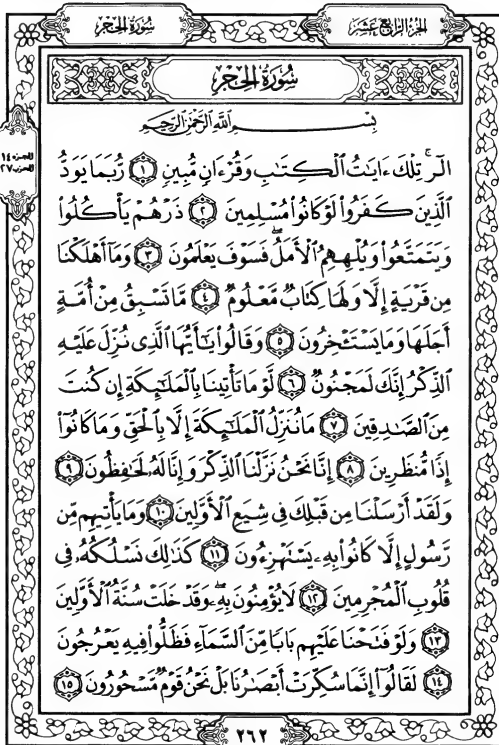 سُورَةُ الحِجْرِ
الجُزْءُ الرَّابِعَ عَشَرَ
سُورَةُ الحِجْرِ
بِسْمِ اللَّهِ الرَّحْمَٰنِ الرَّحِيمِ
الجزء ١٤
الحزب ٢٧
الٓر ۚ تِلْكَ ءَايَٰتُ ٱلْكِتَٰبِ وَقُرْءَانٍ مُّبِينٍ ١ رُّبَمَا يَوَدُّ
ٱلَّذِينَ كَفَرُوا۟ لَوْ كَانُوا۟ مُسْلِمِينَ ٢ ذَرْهُمْ يَأْكُلُوا۟
وَيَتَمَتَّعُوا۟ وَيُلْهِهِمُ ٱلْأَمَلُ ۖ فَسَوْفَ يَعْلَمُونَ ٣ وَمَآ أَهْلَكْنَا
مِن قَرْيَةٍ إِلَّا وَلَهَا كِتَابٌ مَّعْلُومٌ ٤ مَّا تَسْبِقُ مِنْ أُمَّةٍ
أَجَلَهَا وَمَا يَسْتَـْٔخِرُونَ ٥ وَقَالُوا۟ يَٰٓأَيُّهَا ٱلَّذِى نُزِّلَ عَلَيْهِ
ٱلذِّكْرُ إِنَّكَ لَمَجْنُونٌ ٦ لَّوْ مَا تَأْتِينَا بِٱلْمَلَٰٓئِكَةِ إِن كُنتَ
مِنَ ٱلصَّٰدِقِينَ ٧ مَا نُنَزِّلُ ٱلْمَلَٰٓئِكَةَ إِلَّا بِٱلْحَقِّ وَمَا كَانُوٓا۟
إِذًا مُّنظَرِينَ ٨ إِنَّا نَحْنُ نَزَّلْنَا ٱلذِّكْرَ وَإِنَّا لَهُۥ لَحَٰفِظُونَ ٩
وَلَقَدْ أَرْسَلْنَا مِن قَبْلِكَ فِى شِيَعِ ٱلْأَوَّلِينَ ١٠ وَمَا يَأْتِيهِم مِّن
رَّسُولٍ إِلَّا كَانُوا۟ بِهِۦ يَسْتَهْزِءُونَ ١١ كَذَٰلِكَ نَسْلُكُهُۥ فِى
قُلُوبِ ٱلْمُجْرِمِينَ ١٢ لَا يُؤْمِنُونَ بِهِۦ ۖ وَقَدْ خَلَتْ سُنَّةُ ٱلْأَوَّلِينَ
١٣ وَلَوْ فَتَحْنَا عَلَيْهِم بَابًا مِّنَ ٱلسَّمَآءِ فَظَلُّوا۟ فِيهِ يَعْرُجُونَ
١٤ لَقَالُوٓا۟ إِنَّمَا سُكِّرَتْ أَبْصَٰرُنَا بَلْ نَحْنُ قَوْمٌ مَّسْحُورُونَ ١٥
٢٦٢